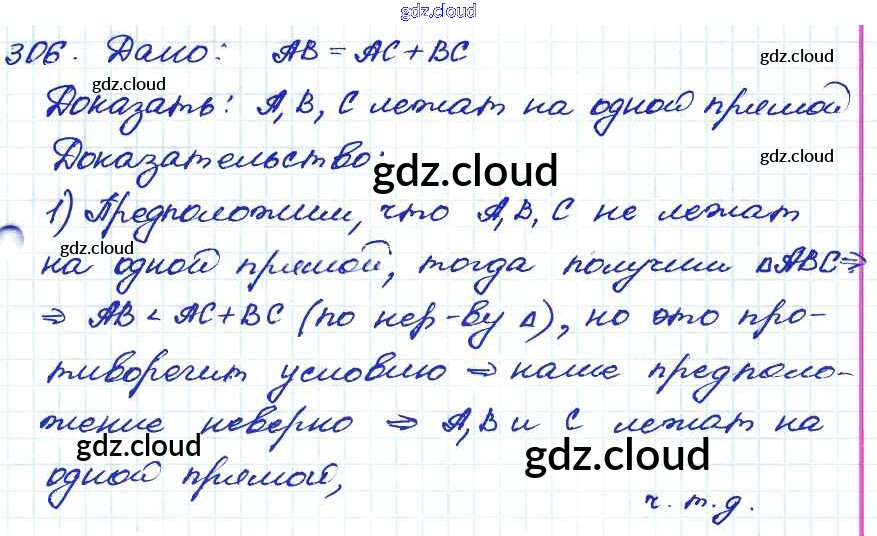 gdz.cloud
306. Дано: AB = AC + BC
gdz.cloud
gdz.cloud
Доказать: A, B, C лежат на одной прямой
Доказательство:
gdz.cloud
gdz.cloud
1) Предположим, что A, B, C не лежат
gdz.cloud
на одной прямой, тогда получим ΔABC ⇒
⇒ AB < AC + BC (по нер-ву Δ), но это про-
тиворечит условию ⇒ наше предполо-
жение неверно ⇒ A, B и C лежат на
gdz.cloud
gdz.cloud
одной прямой,
ч. т. д.